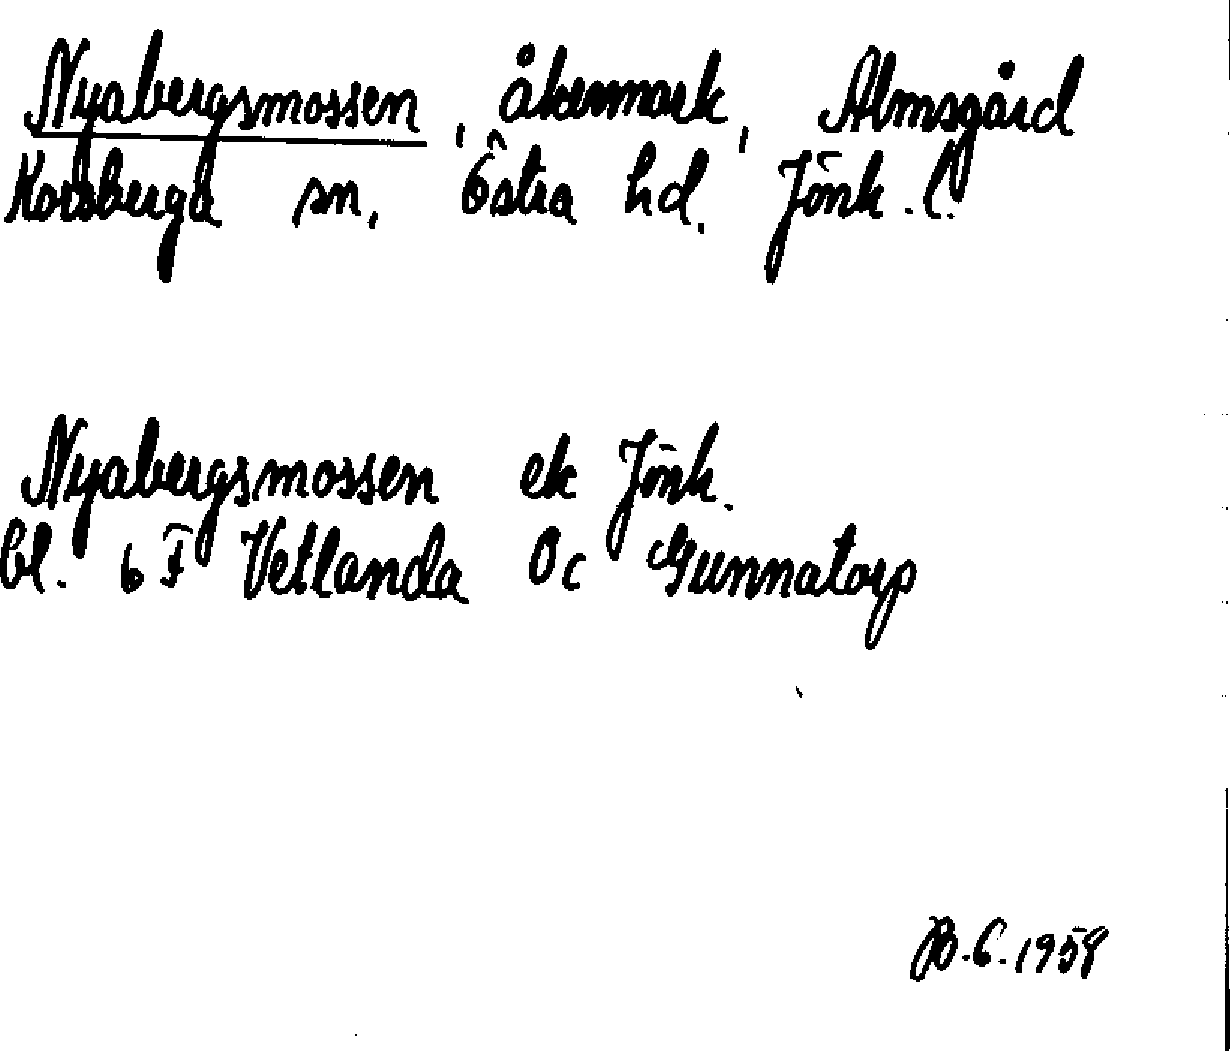 Nyabergsmossen, åkermark, Almsgård
Korsberga sn, Östra hd. Jönk. l.
Nyabergsmossen ek Jönk.
bl. 6 F Vetlanda 0c Gunnatorp
JB.G.1958